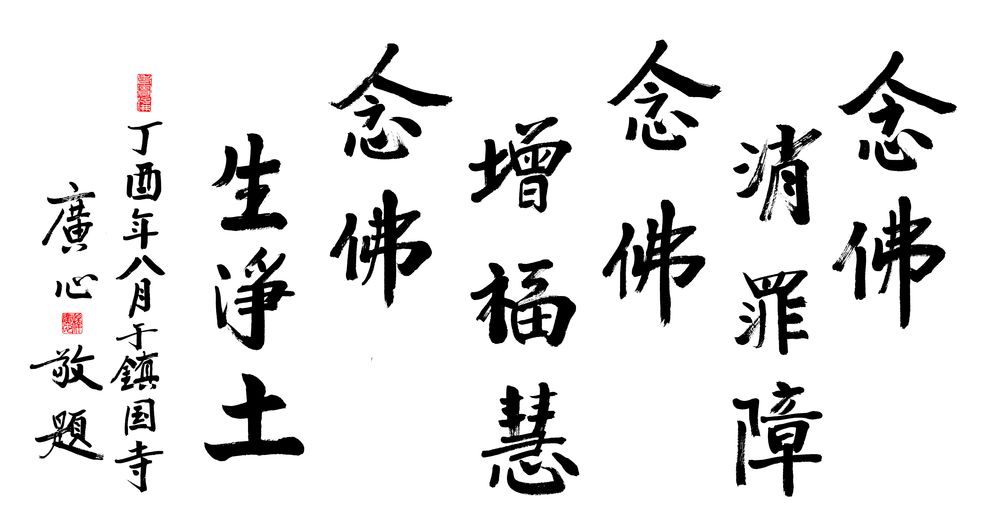 念佛
消罪障
念佛
增福慧
念佛
生淨土
丁酉年八月于鎮国寺
廣心敬題